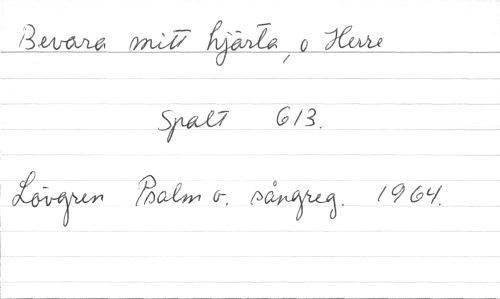 Bevara mitt hjärta, o Herre
Spalt 613.
Lövgren Psalm o. sångreg. 1964.